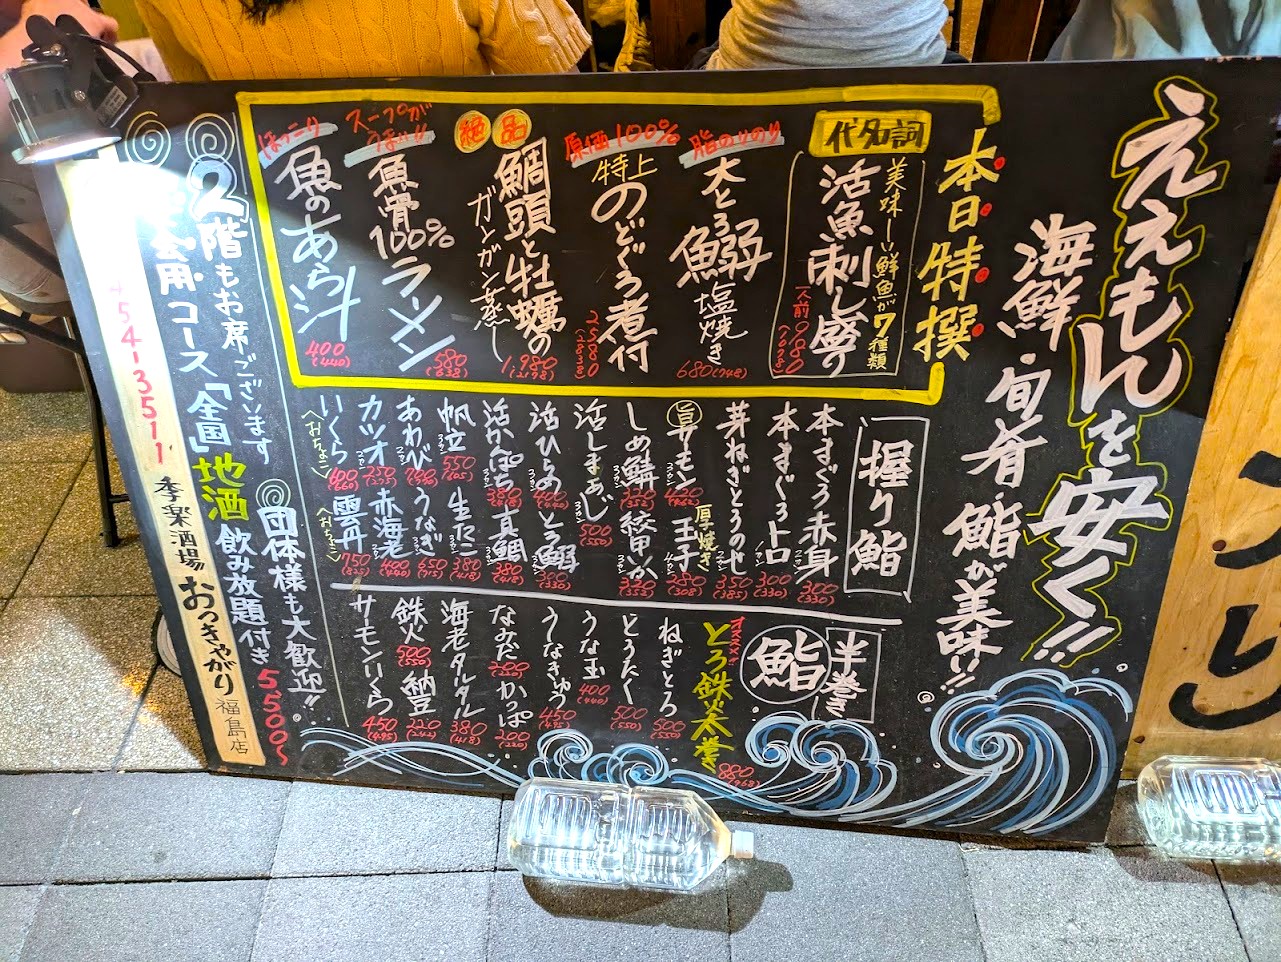 ええもんを安く!!
海鮮・旬肴・鮨が美味い!!
本日特撰
代名詞
美味しい鮮魚が7種類
活魚刺し盛り
一人前
脂のりのり
大とろ鰯塩焼き
680(748)
原価100%
特上
のどぐろ煮付
2580
(2838)
絶品
鯛頭と牡蠣の
ガンガン蒸し
1,980
(2178)
スープが
うまい!!
魚骨100%ラーメン
580
(638)
ほっこり
魚のあら汁
400
(440)
握り鮨
本まぐろ赤身
300
(330)
本まぐろトロ
300
(330)
芽ねぎとうのせ
350
(385)
旨サーモン
420
(462)
厚焼き玉子
280
(308)
しめ鯖
320
(352)
紋甲いか
活しまあじ
500
(550)
活ひらめ
400
(440)
とろ鰯
300
(330)
活かんぱち
380
(418)
真鯛
380
(418)
帆立
550
(605)
生たこ
380
(418)
あわび
うなぎ
650
(715)
カツオ
赤海老
400
(440)
いくら
(おちょこ)
600
(660)
雲丹
(おちょこ)
750
(825)
半巻き
鮨
オススメ!!
とろ鉄火太巻
880
(968)
ねぎとろ
500
(550)
とろたく
500
(550)
うな玉
400
(440)
うなきゅう
450
(495)
なみだ
200
(220)
かっぱ
200
(220)
海老タルタル
380
(418)
鉄火
500
(550)
納豆
220
(242)
サーモンいくら
450
(495)
2階もお席ございます
団体様も大歓迎!!
宴会用コース「全国」地酒飲み放題付き5500〜
454-3511
季楽酒場おっきゃがり福島店